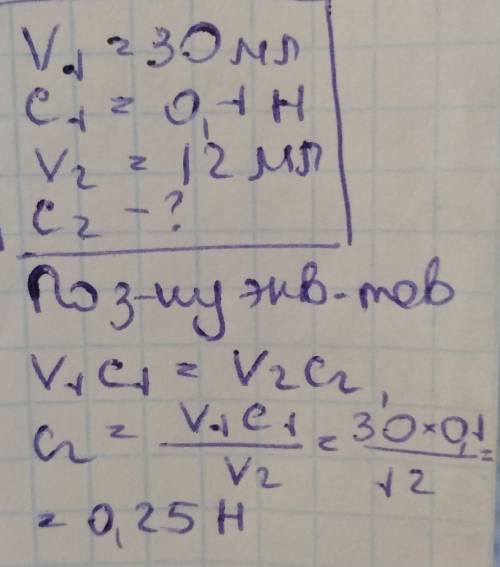 V₁ = 30 мл
C₁ = 0,1 Н
V₂ = 12 мл
C₂ - ?
По з-ну экв-тов
V₁C₁ = V₂C₂,
C₂ = V₁C₁ / V₂ = 30×0,1 / 12 =
= 0,25 Н